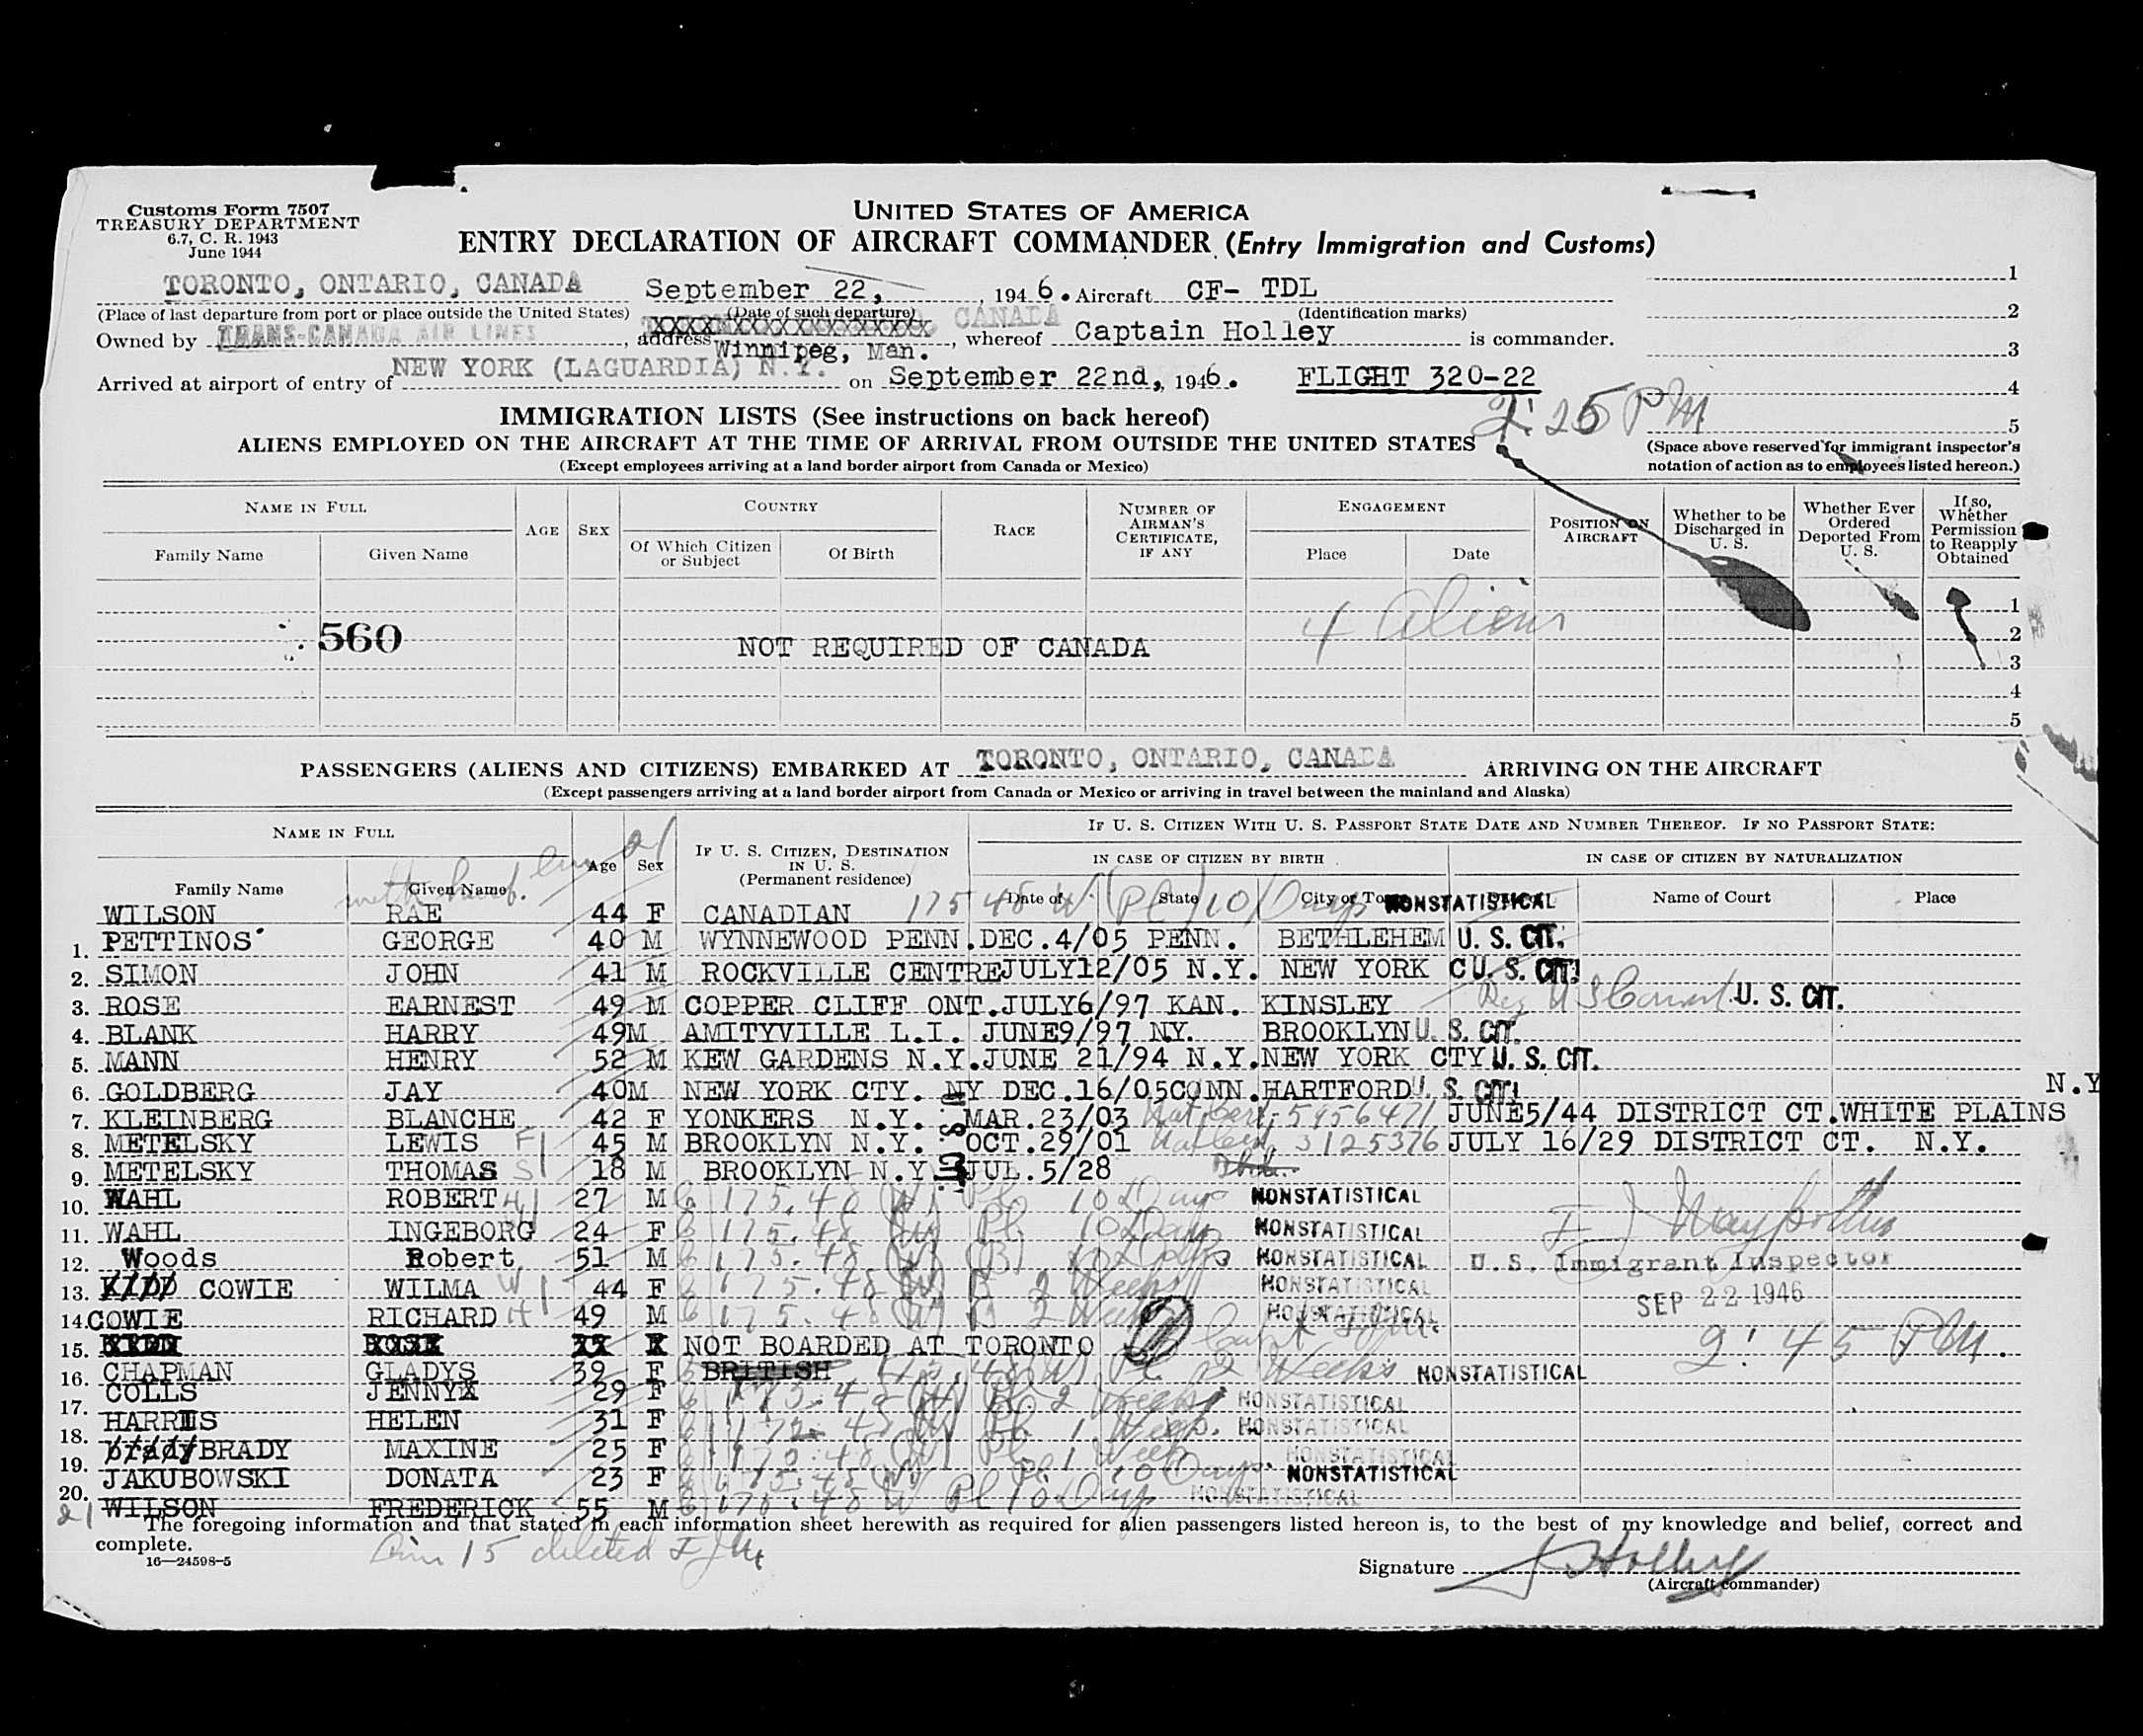 Customs Form 7507
TREASURY DEPARTMENT
6.7, C. R. 1943
June 1944
UNITED STATES OF AMERICA
ENTRY DECLARATION OF AIRCRAFT COMMANDER (Entry Immigration and Customs)
TORONTO, ONTARIO, CANADA September 22, , 194 6. Aircraft CF- TDL 1
(Place of last departure from port or place outside the United States) (Date of such departure) (Identification marks) 2
Owned by TRANS-CANADA AIR LINES , address XXXXXXXXXXXXXXXXXXX CANADA , whereof Captain Holley is commander.
Winnipeg, Man. 3
Arrived at airport of entry of NEW YORK (LAGUARDIA) N.Y. on September 22nd, 1946. FLIGHT 320-22 4
2:25 PM 5
IMMIGRATION LISTS (See instructions on back hereof)
ALIENS EMPLOYED ON THE AIRCRAFT AT THE TIME OF ARRIVAL FROM OUTSIDE THE UNITED STATES
(Except employees arriving at a land border airport from Canada or Mexico)
(Space above reserved for immigrant inspector's
notation of action as to employees listed hereon.)
NAME IN FULL AGE SEX COUNTRY RACE NUMBER OF AIRMAN'S CERTIFICATE, IF ANY ENGAGEMENT POSITION ON AIRCRAFT Whether to be Discharged in U. S. Whether Ever Ordered Deported From U. S. If so, Whether Permission to Reapply Obtained
Family Name Given Name Of Which Citizen or Subject Of Birth Place Date
1
560 NOT REQUIRED OF CANADA 4 Aliens 2
3
4
5
PASSENGERS (ALIENS AND CITIZENS) EMBARKED AT TORONTO, ONTARIO, CANADA ARRIVING ON THE AIRCRAFT
(Except passengers arriving at a land border airport from Canada or Mexico or arriving in travel between the mainland and Alaska)
NAME IN FULL Age Sex IF U. S. CITIZEN, DESTINATION IN U. S. (Permanent residence) IF U. S. CITIZEN WITH U. S. PASSPORT STATE DATE AND NUMBER THEREOF. IF NO PASSPORT STATE:
IN CASE OF CITIZEN BY BIRTH IN CASE OF CITIZEN BY NATURALIZATION
Family Name Given Name Date of State City or Name of Court Place
WILSON RAE 44 F CANADIAN 175 48 W (Pl) 10 Days NONSTATISTICAL
1. PETTINOS GEORGE 40 M WYNNEWOOD PENN. DEC.4/05 PENN. BETHLEHEM U. S. CIT.
2. SIMON JOHN 41 M ROCKVILLE CENTRE JULY12/05 N.Y. NEW YORK C U. S. CIT.
3. ROSE EARNEST 49 M COPPER CLIFF ONT. JULY6/97 KAN. KINSLEY U. S. CIT.
4. BLANK HARRY 49 M AMITYVILLE L.I. JUNE9/97 NY. BROOKLYN U. S. CIT.
5. MANN HENRY 52 M KEW GARDENS N.Y. JUNE 21/94 N.Y. NEW YORK CTY U. S. CIT.
6. GOLDBERG JAY 40 M NEW YORK CTY. NY DEC.16/05 CONN. HARTFORD U. S. CIT. N.Y
7. KLEINBERG BLANCHE 42 F YONKERS N.Y. MAR.23/03 Nat Cert. 5956471 JUNE5/44 DISTRICT CT. WHITE PLAINS
8. METELSKY LEWIS F 45 M BROOKLYN N.Y. OCT.29/01 Nat Cert. 3125376 JULY 16/29 DISTRICT CT. N.Y.
9. METELSKY THOMAS S 18 M BROOKLYN N.Y. U. S. CIT. JUL.5/28
10. WAHL ROBERT H 27 M 175.48 (W) Pl. 10 Days NONSTATISTICAL
11. WAHL INGEBORG 24 F 175.48 (W) Pl. 10 Days NONSTATISTICAL
12. Woods Robert 51 M 175.48 (W) (B) 10 Days NONSTATISTICAL U. S. Immigrant Inspector
13. KIDD COWIE WILMA W 44 F 175.48 (W) B 2 Weeks NONSTATISTICAL SEP 22 1946
14. COWIE RICHARD H 49 M 175.48 (W) B 2 Weeks NONSTATISTICAL
15. NOT BOARDED AT TORONTO 2:45 PM.
16. CHAPMAN GLADYS 39 F BRITISH 175.48 (W) Pl. 2 Weeks NONSTATISTICAL
17. COLLS JENNY 29 F 175.48 (W) Pl. 2 Weeks NONSTATISTICAL
18. HARRIS HELEN 31 F Pl. 1 Week NONSTATISTICAL
19. brady BRADY MAXINE 25 F Pl 1 Week NONSTATISTICAL
20. JAKUBOWSKI DONATA 23 F 175.48 (W) Pl 10 Days. NONSTATISTICAL
21 WILSON FREDERICK 55 M 175.48 W Pl 10 Days NONSTATISTICAL
The foregoing information and that stated in each information sheet herewith as required for alien passengers listed hereon is, to the best of my knowledge and belief, correct and
complete.
16—24598-5
Line 15 deleted
Signature J Holley
(Aircraft commander)